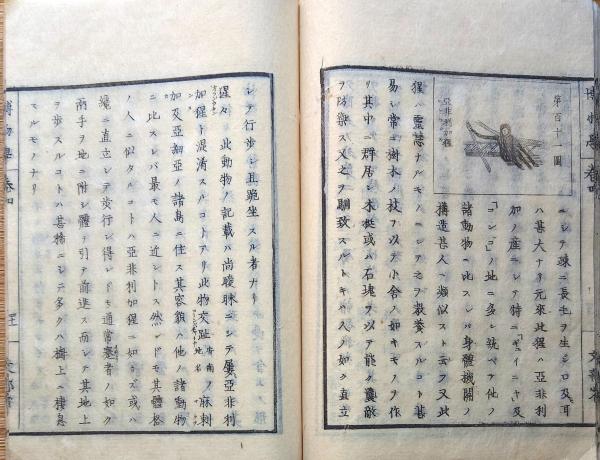 第百十一圖
亞非利加猩
ニシテ疎ニ長毛ヲ生シ口及耳
ハ甚大ナリ元來此猩ハ亞非利
加ノ産ニシテ特ニ「ギュイニー」及
「コンゴ」ノ地ニ多シ統ヘテ他ノ
諸動物ニ比スレバ身體機關ノ
構造甚人ニ類似スト云フ又此
猩ハ靈慧ナルモノニシテ之ヲ教養スルコト甚
易シ常ニ樹木ノ枝ヲ以テ小舎ノ如キモノヲ作
リ其中ニ群居シ木梃或ハ石塊ヲ以テ能ク寇敵
ヲ防禦ス又之ヲ馴致スルトキハ人ノ如ク直立
シテ行歩シ且跪坐スル者ナリ
猩々 此動物ノ記載ハ尚曖昧ニシテ屢亞非利
加猩ト混淆スルコトアリ此物交趾 地名 ノ麻剌
加及亞細亞ノ諸島ニ住ス其容貌ハ他ノ諸動物
ニ比スレバ最モ人ニ近シトス然レドモ其體格
ノ人ニ似タルコトハ亞非利加猩ニ如カズ或ハ
纔ニ直立シテ歩行シ得レドモ通常 ノ如ク
兩手ヲ地ニ附シ體ヲ引テ前進ス而シテ其地上
ヲ歩スルコトハ甚稀ニシテ多クハ樹上ニ棲息
スルモノナリ
博物學 卷四
文部省